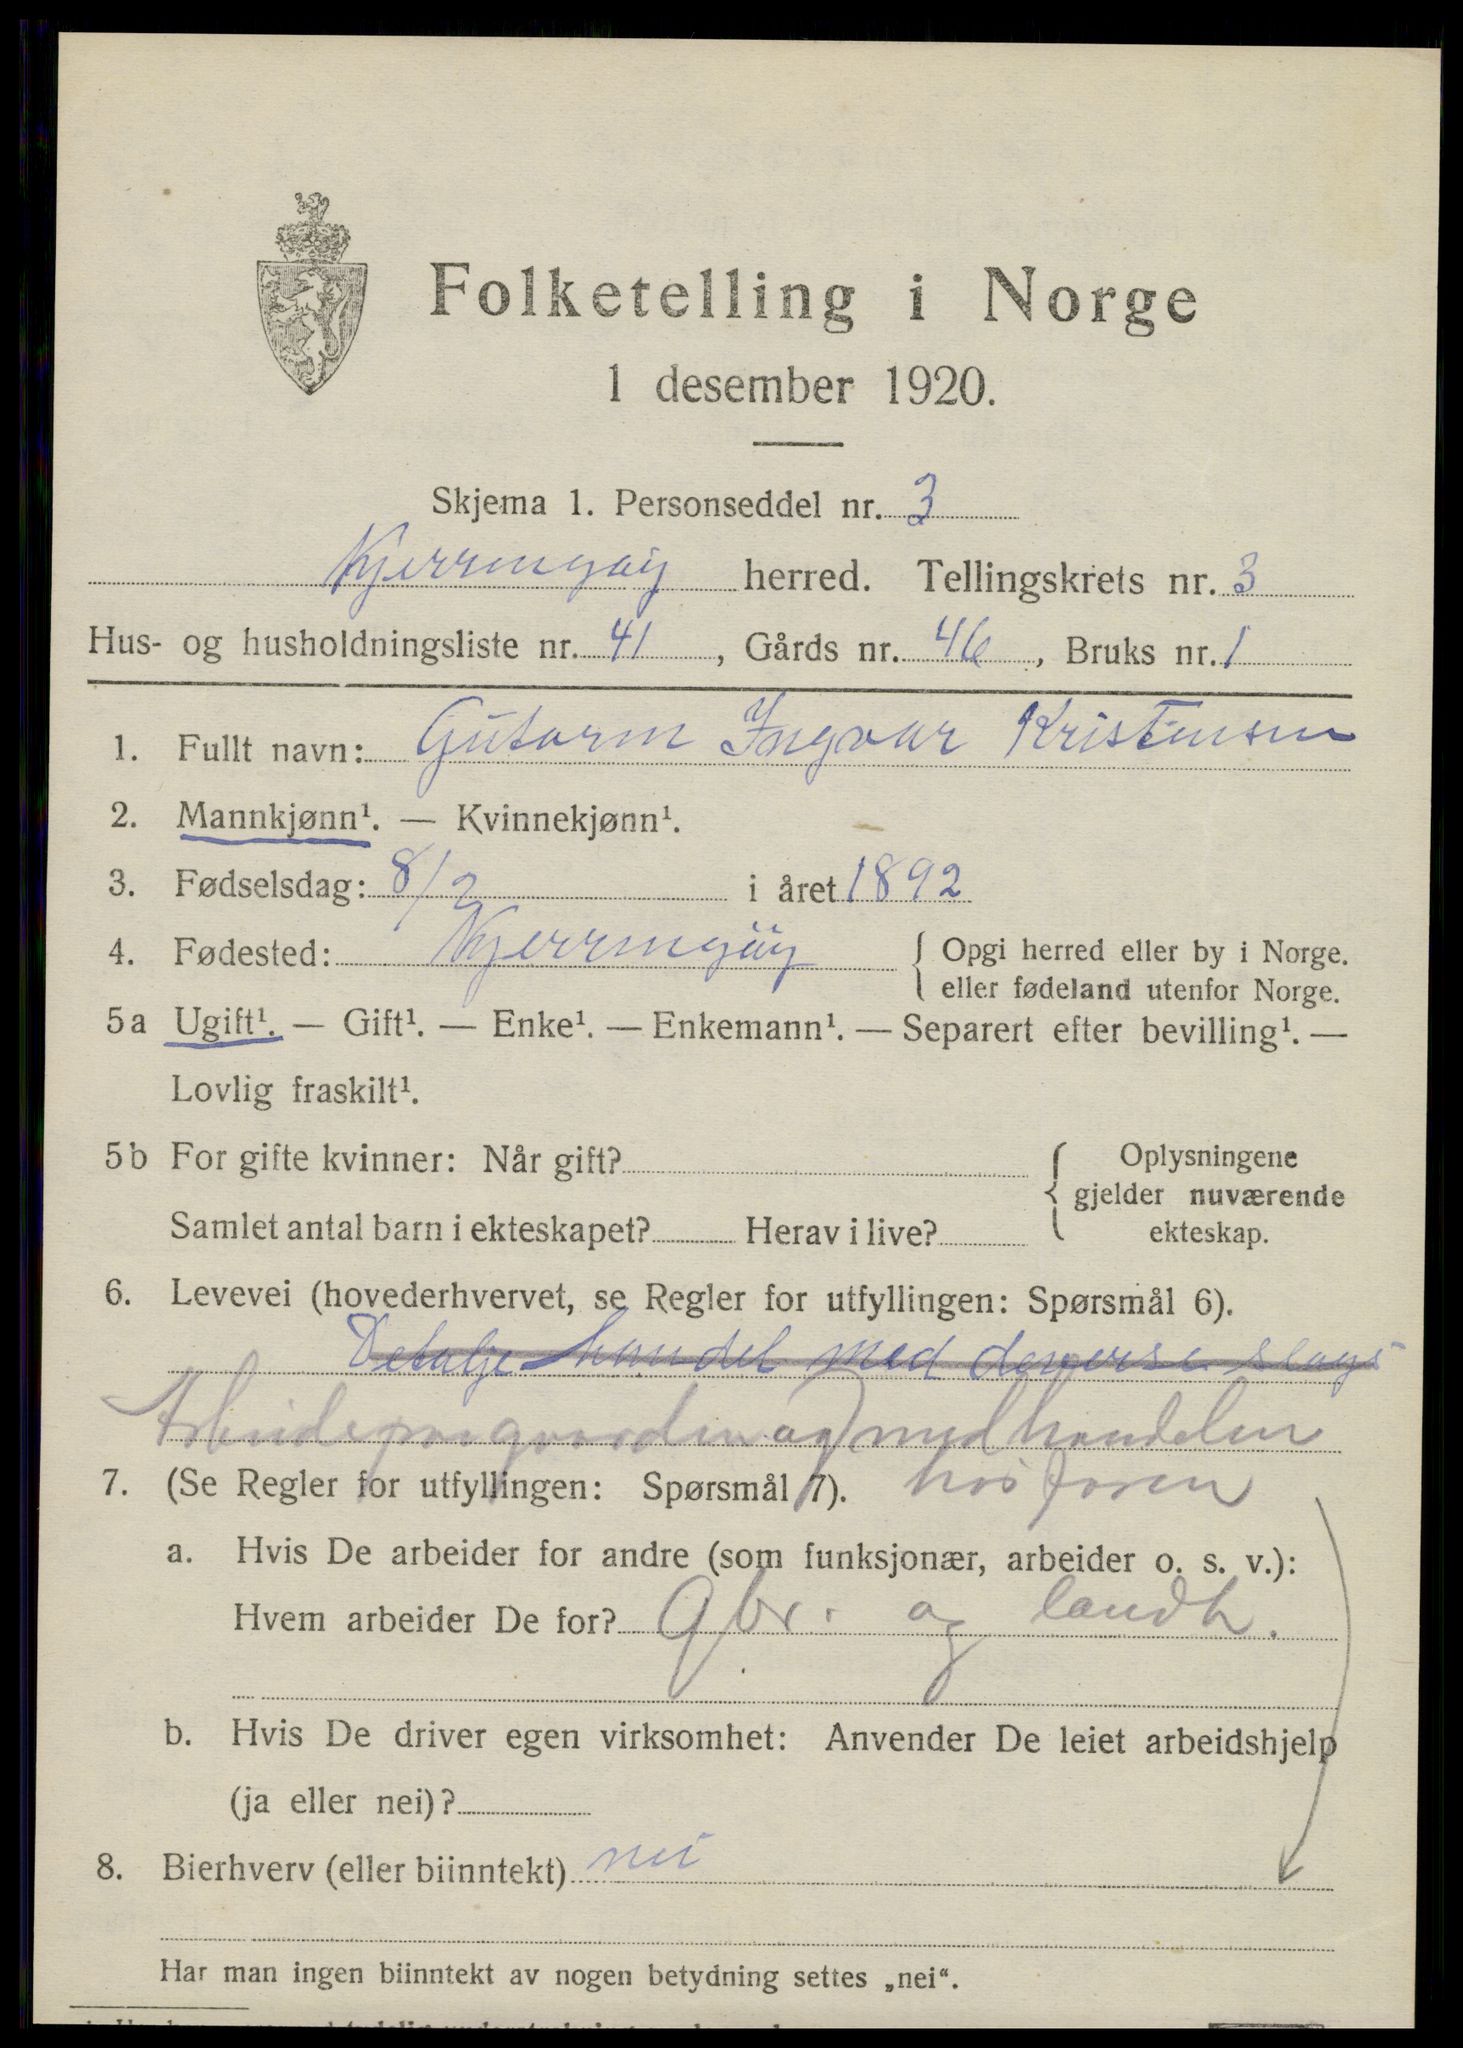 Folketelling i Norge
1 desember 1920.
Skjema 1. Personseddel nr. 3
Kjerringøy herred. Tellingskrets nr. 3
Hus- og husholdningsliste nr. 41, Gårds nr. 46, Bruks nr. 1
1. Fullt navn: Gutorm Ingvar Kristensen
2. Mannkjønn¹. — Kvinnekjønn¹.
3. Fødselsdag: 8/2 i året 1892
4. Fødested: Kjerringøy { Opgi herred eller by i Norge.
eller fødeland utenfor Norge.
5a Ugift¹. — Gift¹. — Enke¹. — Enkemann¹. — Separert efter bevilling¹. —
Lovlig fraskilt¹.
5b For gifte kvinner: Når gift? { Oplysningene
gjelder nuværende
Samlet antal barn i ekteskapet? Herav i live? ekteskap.
6. Levevei (hovederhvervet, se Regler for utfyllingen: Spørsmål 6).
Detalje handel med diverse slags
Arbeide paa gaarden og med handelen
7. (Se Regler for utfyllingen: Spørsmål 7). hos faren
a. Hvis De arbeider for andre (som funksjonær, arbeider o. s. v.):
Hvem arbeider De for? Gbr. og landh.
b. Hvis De driver egen virksomhet: Anvender De leiet arbeidshjelp
(ja eller nei)?
8. Bierhverv (eller biinntekt) nei
Har man ingen biinntekt av nogen betydning settes „nei“.